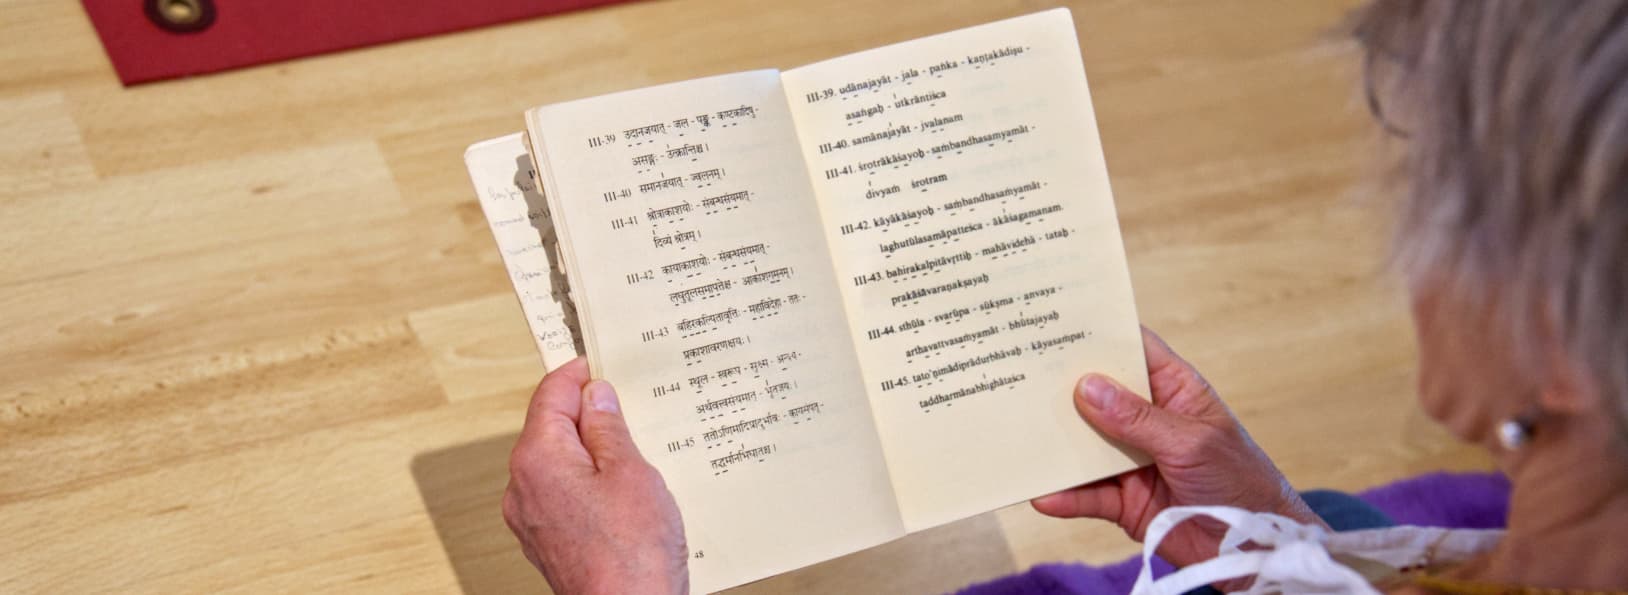 III-39 उदानजयात् - जल - पङ्क - कण्टकादिषु -
असङ्गः - उत्क्रान्तिश्च ।
III-40 समानजयात् - ज्वलनम् ।
III-41 श्रोत्राकाशयोः - संबन्धसंयमात् -
दिव्यं श्रोत्रम् ।
III-42 कायाकाशयोः - संबन्धसंयमात् -
लघुतूलसमापत्तेश्च - आकाशगमनम् ।
III-43 बहिरकल्पितावृत्तिः - महाविदेहा - ततः -
प्रकाशावरणक्षयः ।
III-44 स्थूल - स्वरूप - सूक्ष्म - अन्वय -
अर्थवत्त्वसंयमात् - भूतजयः ।
III-45 ततोऽणिमादिप्रादुर्भावः - कायसंपत् -
तद्धर्मानभिघातश्च ।
48
III-39. udānajayāt - jala - paṅka - kaṇṭakādiṣu -
asaṅgaḥ - utkrāntiśca
III-40. samānajayāt - jvalanam
III-41. śrotrākāśayoḥ - saṁbandhasaṃyamāt -
divyaṁ śrotram
III-42. kāyākāśayoḥ - saṁbandhasaṁyamāt -
laghutūlasamāpatteśca - ākāśagamanam.
III-43. bahirakalpitāvṛttiḥ - mahāvidehā - tataḥ -
prakāśāvaraṇakṣayaḥ
III-44. sthūla - svarūpa - sūkṣma - anvaya -
arthavattvasaṁyamāt - bhūtajayaḥ
III-45. tato'ṇimādiprādurbhāvaḥ - kāyasaṁpat -
taddharmānabhighātaśca